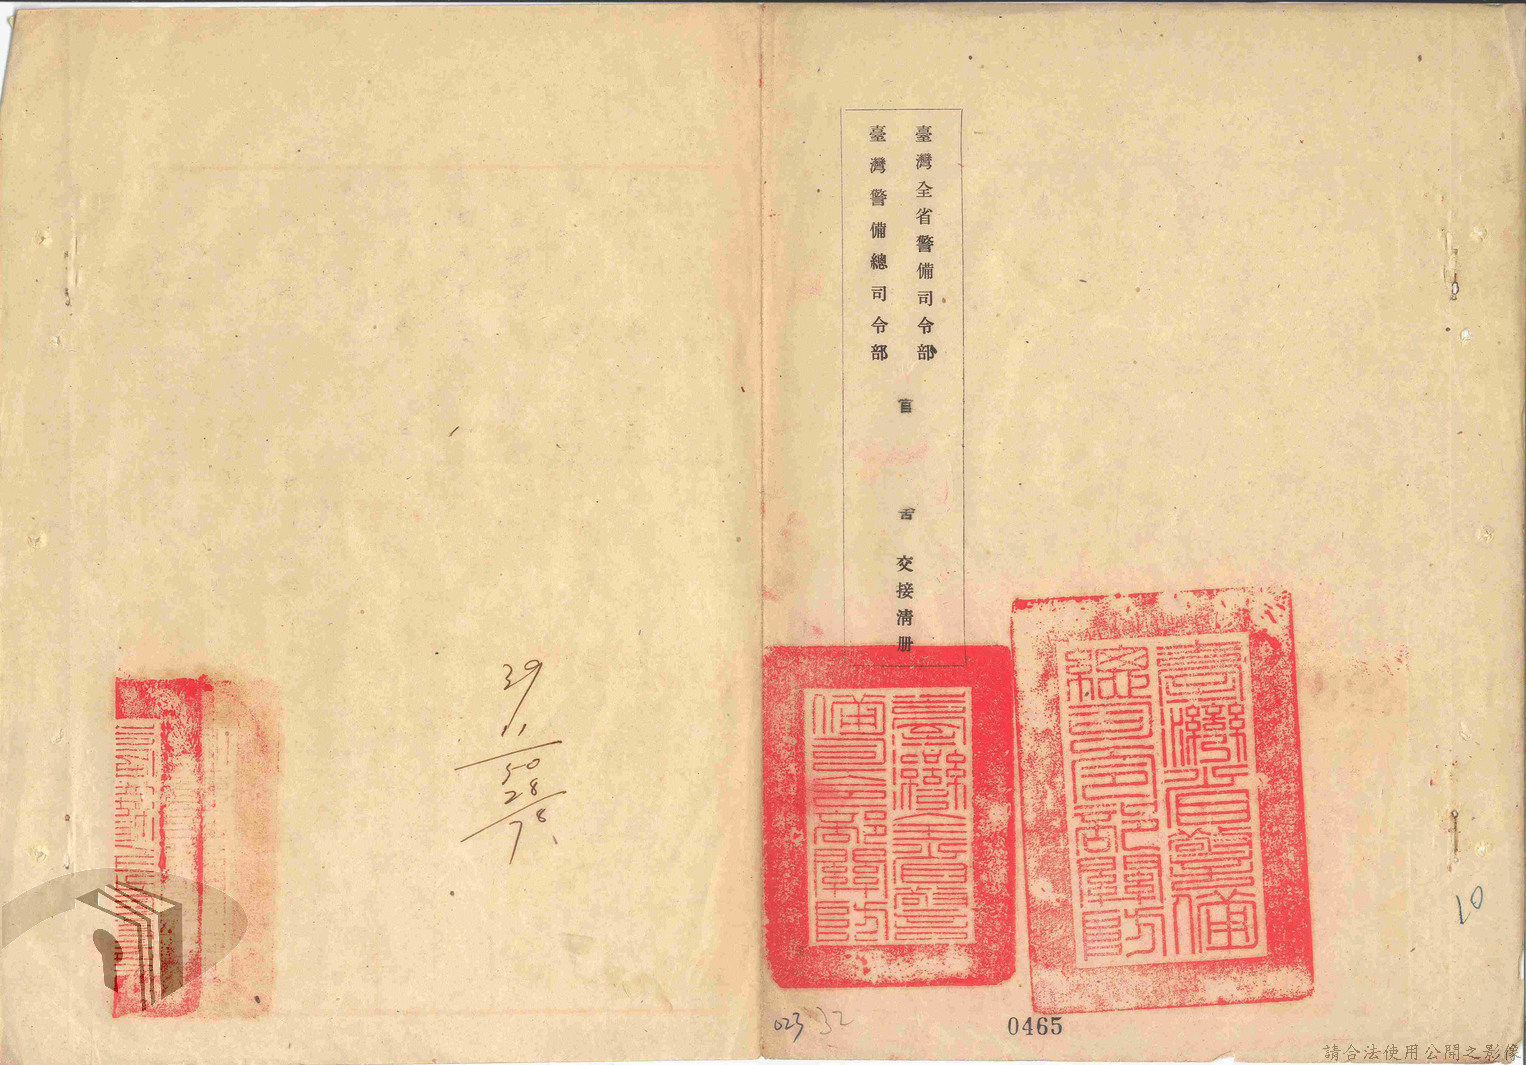 臺灣全省警備司令部
臺灣警備總司令部
官舍交接清册
臺灣全省警
備司令部關防
臺灣省警備
總司令部關防
10
39
11
50
28
78
023 32
0465
請合法使用公開之影像